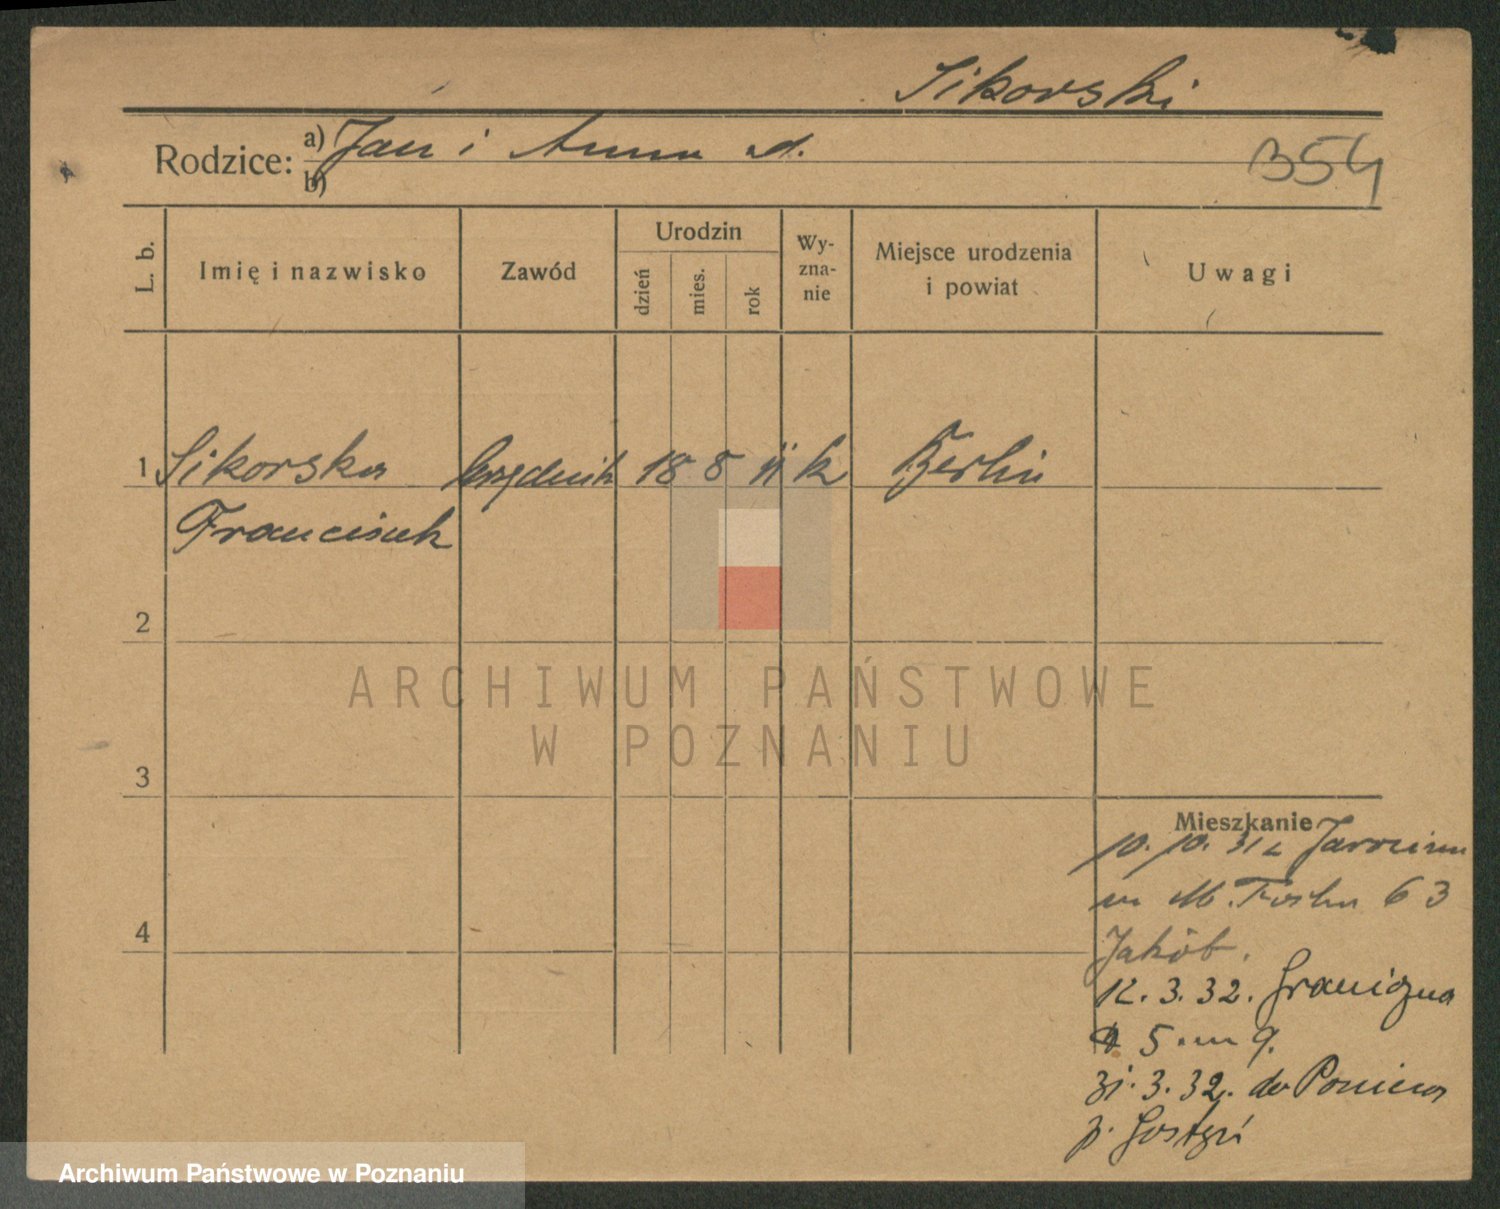 Sikorski
Rodzice: a) Jan i Anna d.
b)
354
L. b.
Imię i nazwisko
Zawód
Urodzin
dzień
mies.
rok
Wy-
zna-
nie
Miejsce urodzenia
i powiat
Uwagi
1 Sikorska urzędnik 18 8 11 k Berlin
Franciszek
2
3
4
Mieszkanie
10. 10. 31 z Jarocina
M. 63
Jakób.
12. 3. 32. Graniczna
5 m 9.
31. 3. 32. do Ponieca
p. Gostyń
ARCHIWUM PAŃSTWOWE
W POZNANIU
Archiwum Państwowe w Poznaniu